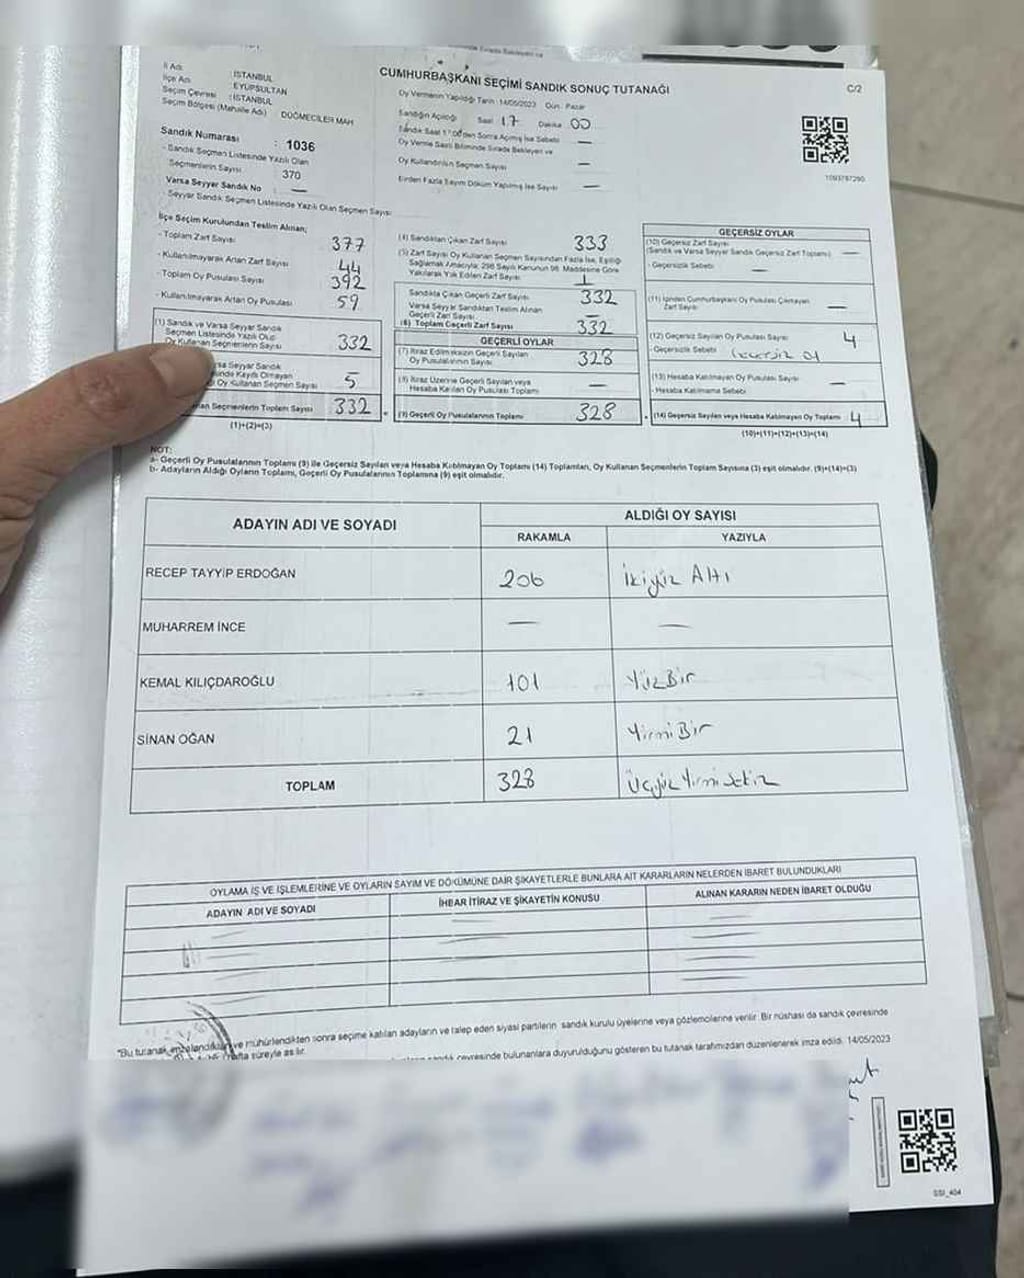 İli Adı : İSTANBUL
İlçe Adı : EYÜPSULTAN
Seçim Çevresi : İSTANBUL
Seçim Bölgesi (Mahalle Adı) DÜĞMECİLER MAH
Sandık Numarası : 1036
- Sandık Seçmen Listesinde Yazılı Olan
Seçmenlerin Sayısı 370
Varsa Seyyar Sandık No —
Seyyar Sandık Seçmen Listesinde Yazılı Olan Seçmen Sayısı
CUMHURBAŞKANI SEÇİMİ SANDIK SONUÇ TUTANAĞI
C/2
Oy Vermenin Yapıldığı Tarih: 14/05/2023 Gün: Pazar
Sandığın Açılışı Saat 17 Dakika 00
Sandık Saat 17:00'den Sonra Açılmış İse Sebebi —
Oy Verme Saati Bitiminde Sırada Bekleyen ve
Oy Kullandırılan Seçmen Sayısı —
Birden Fazla Sayım Döküm Yapılmış İse Sayısı —
1093767290
İlçe Seçim Kurulundan Teslim Alınan;
- Toplam Zarf Sayısı 377
- Kullanılmayarak Artan Zarf Sayısı 44
- Toplam Oy Pusulası Sayısı 392
- Kullanılmayarak Artan Oy Pusulası 59
(1) Sandık ve Varsa Seyyar Sandık
Seçmen Listesinde Yazılı Olup
Oy Kullanan Seçmenlerin Sayısı 332
Seyyar Sandık
Kayıtlı Olmayan
Oy Kullanan Seçmen Sayısı 5
Seçmenlerin Toplam Sayısı 332
(1)+(2)=(3)
(4) Sandıktan Çıkan Zarf Sayısı 333
(5) Zarf Sayısı Oy Kullanan Seçmen Sayısından Fazla İse, Eşitliği
Sağlamak Amacıyla, 298 Sayılı Kanunun 98. Maddesine Göre
Yakılarak Yok Edilen Zarf Sayısı 1
Sandıkta Çıkan Geçerli Zarf Sayısı 332
Varsa Seyyar Sandıktan Teslim Alınan
Geçerli Zarf Sayısı —
(6) Toplam Geçerli Zarf Sayısı 332
GEÇERLİ OYLAR
(7) İtiraz Edilmeksizin Geçerli Sayılan
Oy Pusulalarının Sayısı 328
(8) İtiraz Üzerine Geçerli Sayılan veya
Hesaba Katılan Oy Pusulası Toplamı —
(9) Geçerli Oy Pusulalarının Toplamı 328
GEÇERSİZ OYLAR
(10) Geçersiz Zarf Sayısı
(Sandık ve Varsa Seyyar Sandık Geçersiz Zarf Toplamı) —
- Geçersizlik Sebebi —
(11) İçinden Cumhurbaşkanı Oy Pusulası Çıkmayan
Zarf Sayısı —
(12) Geçersiz Sayılan Oy Pusulası Sayısı 4
- Geçersizlik Sebebi
(13) Hesaba Katılmayan Oy Pusulası Sayısı —
- Hesaba Katılmama Sebebi
(14) Geçersiz Sayılan veya Hesaba Katılmayan Oy Toplamı 4
(10)+(11)+(12)+(13)=(14)
NOT:
a- Geçerli Oy Pusulalarının Toplamı (9) ile Geçersiz Sayılan veya Hesaba Katılmayan Oy Toplamı (14) Toplamları, Oy Kullanan Seçmenlerin Toplam Sayısına (3) eşit olmalıdır. (9)+(14)=(3)
b- Adayların Aldığı Oyların Toplamı, Geçerli Oy Pusulalarının Toplamına (9) eşit olmalıdır.
ADAYIN ADI VE SOYADI ALDIĞI OY SAYISI
RAKAMLA YAZIYLA
RECEP TAYYİP ERDOĞAN 206 İkiyüz Altı
MUHARREM İNCE — —
KEMAL KILIÇDAROĞLU 101 YüzBir
SİNAN OĞAN 21 YirmiBir
TOPLAM 328 Üçyüz Yirmi Sekiz
OYLAMA İŞ VE İŞLEMLERİNE VE OYLARIN SAYIM VE DÖKÜMÜNE DAİR ŞİKAYETLERLE BUNLARA AİT KARARLARIN NELERDEN İBARET BULUNDUKLARI
ADAYIN ADI VE SOYADI İHBAR İTİRAZ VE ŞİKAYETİN KONUSU ALINAN KARARIN NEDEN İBARET OLDUĞU
*Bu tutanak imzalandıktan ve mühürlendikten sonra seçime katılan adayların ve talep eden siyasi partilerin sandık kurulu üyelerine veya gözlemcilerine verilir. Bir nüshası da sandık çevresinde
hafta süreyle asılır.
sandık çevresinde bulunanlara duyurulduğunu gösteren bu tutanak tarafımızdan düzenlenerek imza edildi. 14/05/2023
SSI_404